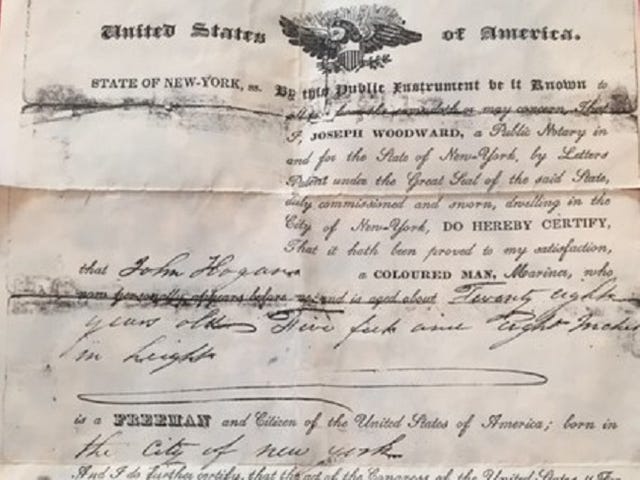 United States of America.
STATE OF NEW-YORK, ss. By this Public Instrument be it Known to
all to whom the same doth or may concern, That
I, JOSEPH WOODWARD, a Public Notary in
and for the State of New-York, by Letters
Patent under the Great Seal of the said State,
duly commissioned and sworn, dwelling in the
City of New-York, DO HEREBY CERTIFY,
That it hath been proved to my satisfaction,
that John Hogan a COLOURED MAN, Mariner, who
now personally appears before me, and is aged about Twenty eight
years old Five feet and Eight Inches
in height
is a FREEMAN and Citizen of the United States of America; born in
the City of new york
And I do further certify, that the act of the Congress of the United States